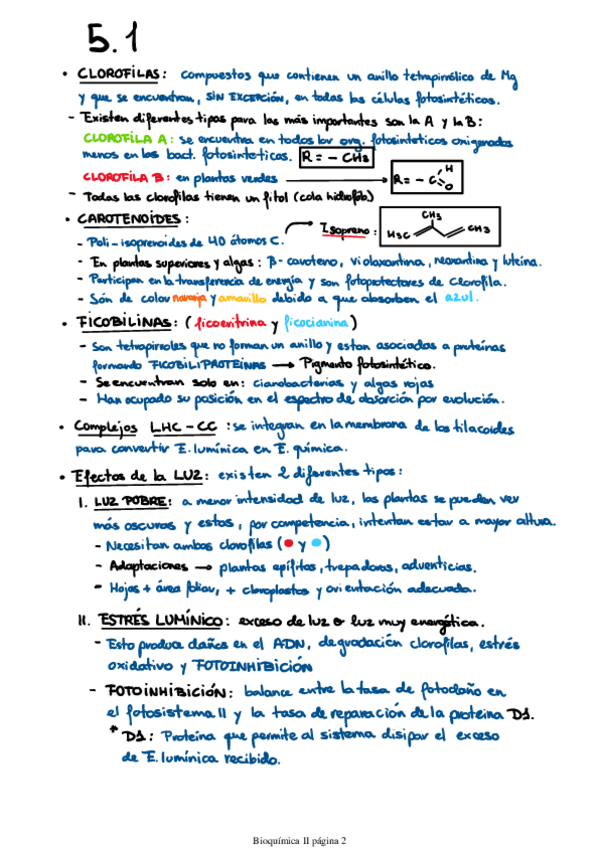 5.1
• CLOROFILAS: compuestos que contienen un anillo tetrapirrólico de Mg
y que se encuentran, SIN EXCEPCIÓN, en todas las células fotosintéticos.
- Existen diferentes tipos para las más importantes son la A y la B:
CLOROFILA A: se encuentra en todos los org. fotosintéticos oxigenados
menos en las bact. fotosintéticas. R = - CH3
CLOROFILA B: en plantas verdes → R = - C H O
- Todas las clorofilas tienen un fitol (cola hidrofób)
• CAROTENOIDES:
- Poli-isoprenoides de 40 átomos C. → Isopreno: H3C CH3 CH3
- En plantas superiores y algas: β-caroteno, violaxantina, neoxantina y luteína.
- Participan en la transferencia de energía y son fotoprotectores de clorofila.
- Són de color naranja y amarillo debido a que absorben el azul.
• FICOBILINAS: (ficoeritrina y ficocianina)
- Son tetrapirroles que no forman un anillo y estan asociados a proteínas
formando FICOBILIPROTEÍNAS → Pigmento fotosintético.
- Se encuentran solo en: cianobacterias y algas rojas
- Han ocupado su posición en el espectro de absorción por evolución.
• Complejos LHC-CC: se integran en la membrana de los tilacoides
para convertir E. lumínica en E. química.
• Efectos de la LUZ: existen 2 diferentes tipos:
I. LUZ POBRE: a menor intensidad de luz, las plantas se pueden ver
más oscuros y estos, por competencia, intentan estar a mayor altura.
- Necesitan ambos clorofilas (● y ●)
- Adaptaciones → plantas epífitas, trepadoras, adventicias.
- Hojas + área foliar, + cloroplastos y orientación adecuada.
II. ESTRÉS LUMÍNICO: exceso de luz o luz muy energética.
- Esto produce daños en el ADN, degradación clorofilas, estrés
oxidativo y FOTOINHIBICIÓN
- FOTOINHIBICIÓN: balance entre la tasa de fotodaño en
el fotosistema II y la tasa de reparación de la proteina D1.
* D1: Proteína que permite al sistema disipar el exceso
de E. lumínica recibido.
Bioquímica II página 2